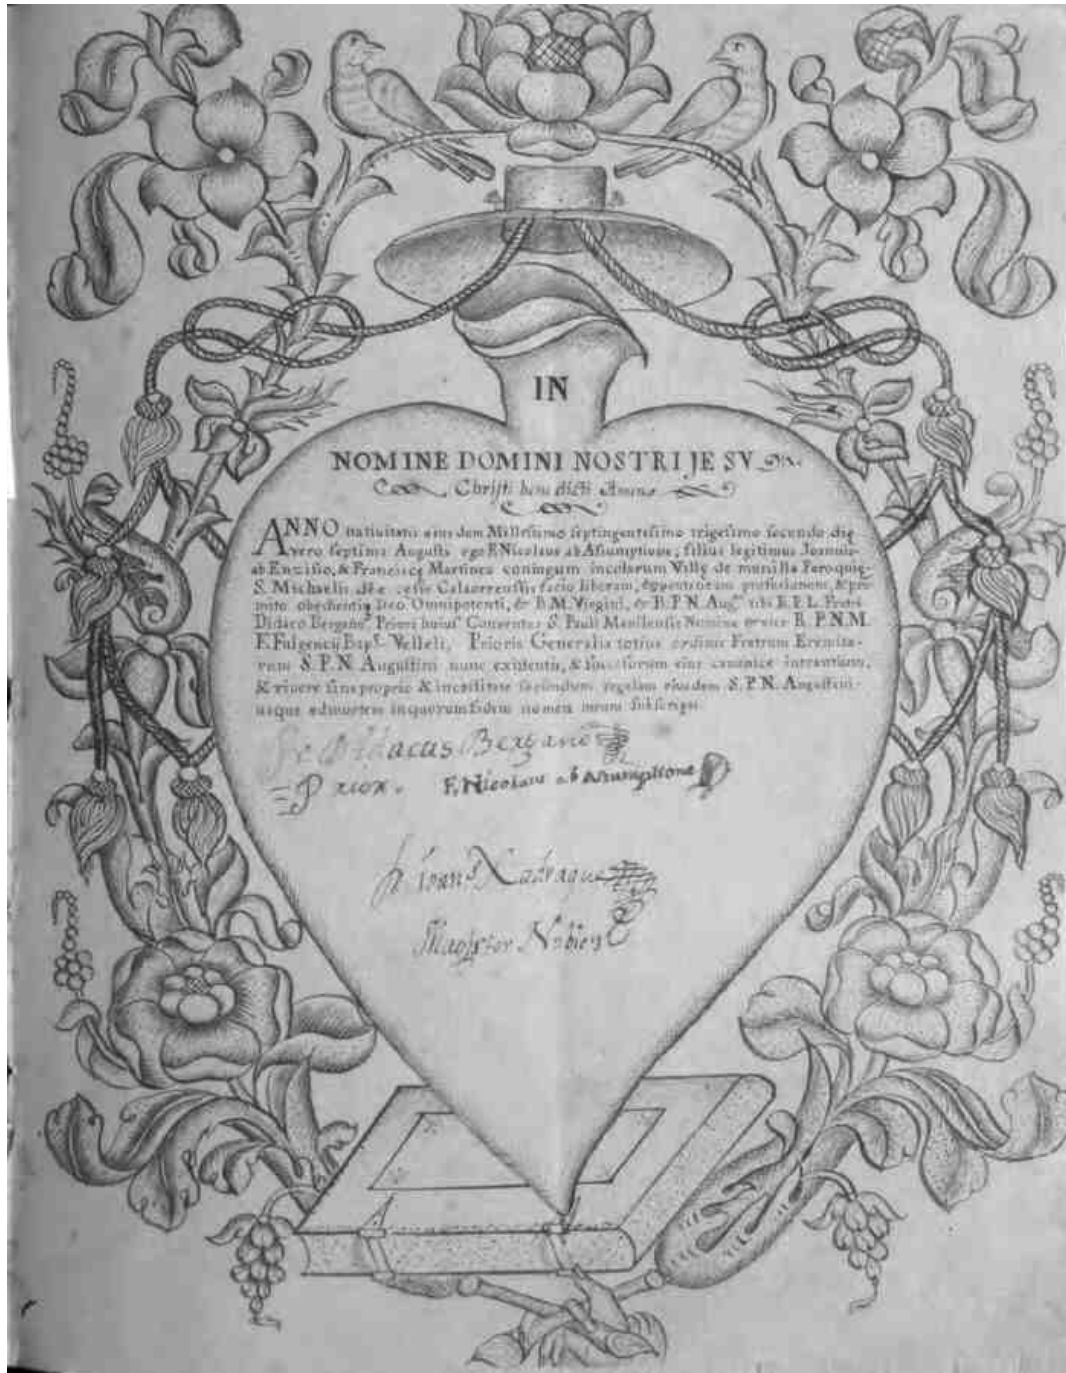 IN
NOMINE DOMINI NOSTRI JESV
Christi bene dicti Amen
ANNO nativitatis eiusdem Millesimo septingentesimo trigesimo secundo die
vero septima Augusti ego F. Nicolaus ab Assumptione, filius legitimus Joannis
ab Enzisio, & Franciscę Martines coniugum incolarum Villę de munilla Paroquię
S. Michaelis Calaorrensis facio liberam, & professionem, & pro
mito obedientiā Deo Omnipotenti, & B. M. Virgini, & B. P. N. Aug. tibi R. P. L. Fratri
Didaco Bergaño Priori huius Conventus S. Pauli Manilensis Nomine ac vice R. P. N. M.
F. Fulgencij Bap. Velleli, Prioris Generalis totius ordinis Fratrum Eremita-
rum S. P. N. Augustini nunc existentis, & successorum eius canonice intrantium,
& vivere sine proprio & in castitate secundum regulam eiusdem S. P. N. Augustini
usque ad mortem in quorum fidem nomen meum subscripsi.
Fr Didacus Bergaño
Prior. F. Nicolaus ab Assumptione
fr Ioans
Magister